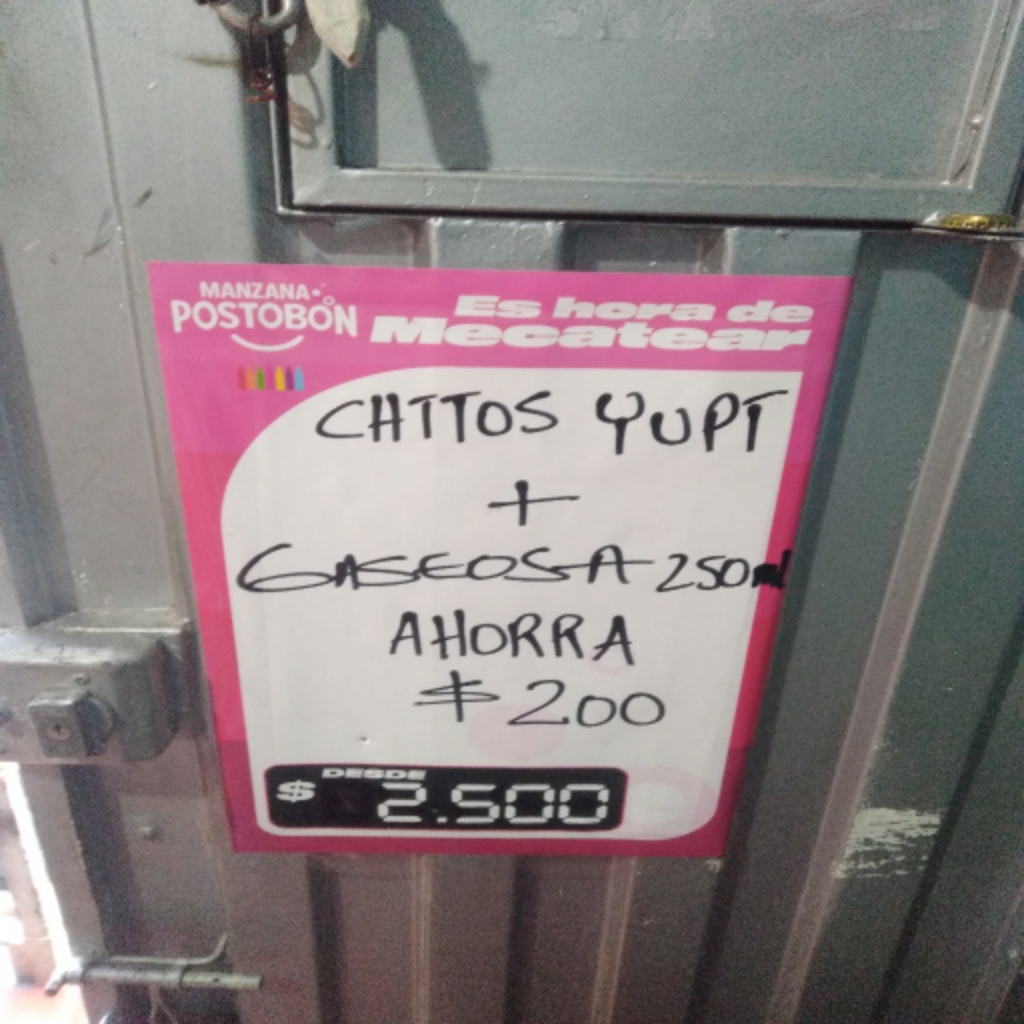 MANZANA
POSTOBÓN
Es hora de
Mecatear
CHITOS YUPI
+
GASEOSA 250ml
AHORRA
$ 200
DESDE
$ 2.500